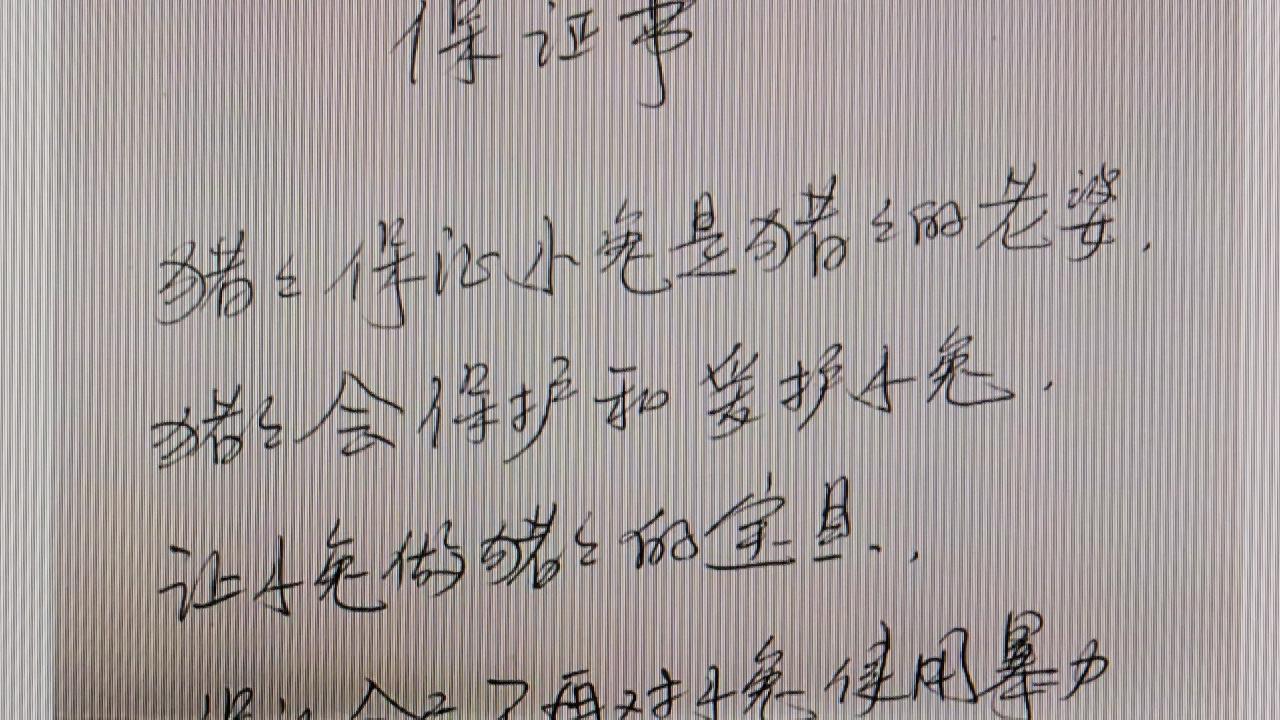 保证书
猪々保证小兔是猪々的老婆.
猪々会保护和爱护小兔.
让小兔做猪々的宝具.
保证 不再对小兔使用暴力